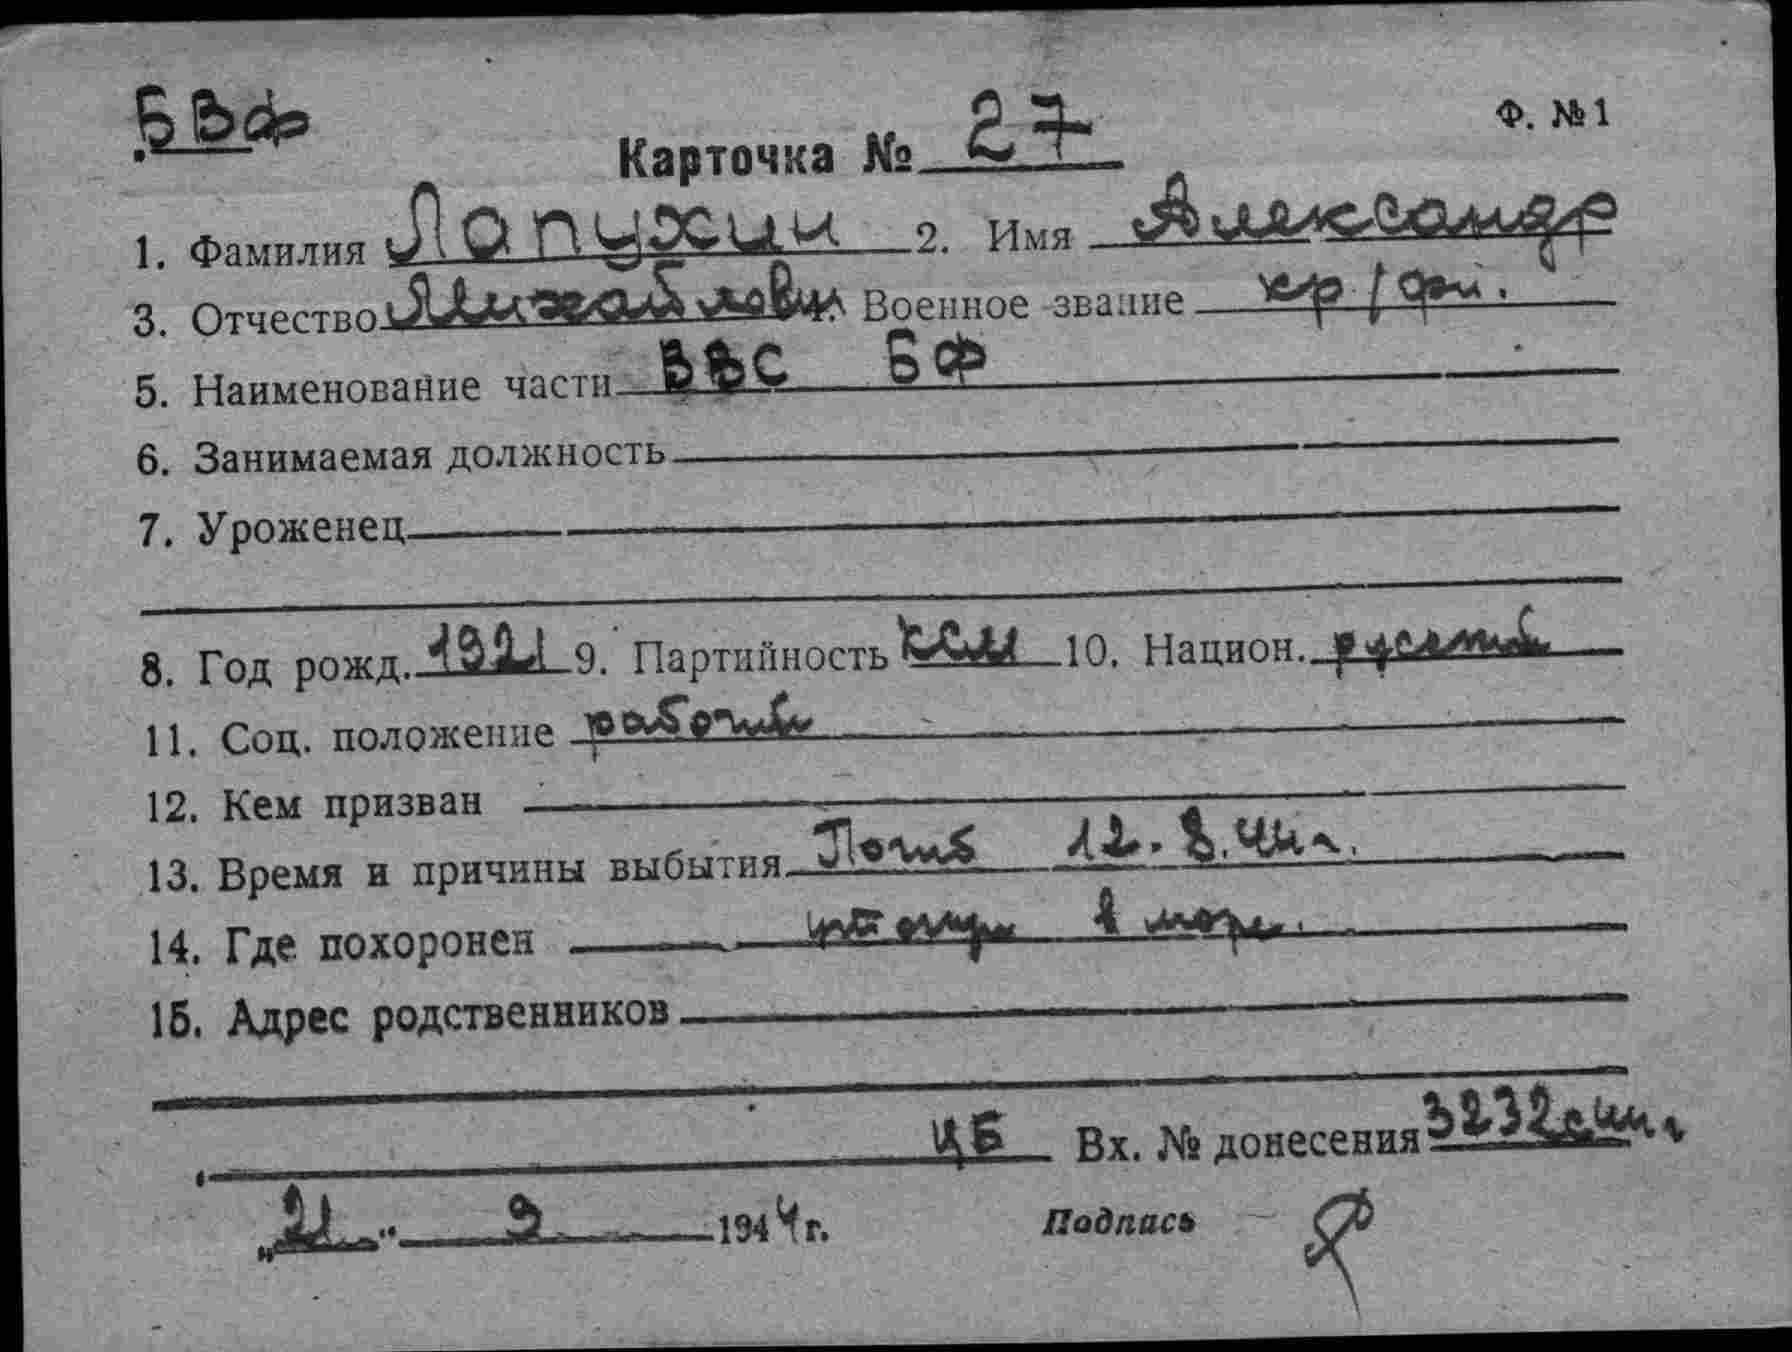 БВФ
Ф. №1
Карточка № 27
1. Фамилия Лапухин 2. Имя Александр
3. Отчество Михайлович Военное звание кр/фл.
5. Наименование части ВВС БФ
6. Занимаемая должность
7. Уроженец
8. Год рожд. 1921 9. Партийность ВЛКСМ 10. Национ. русский
11. Соц. положение рабочий
12. Кем призван
13. Время и причины выбытия Погиб 12.8.44 г.
14. Где похоронен в море.
15. Адрес родственников
ЦБ Вх. № донесения 3232с
„21" 9 1944 г. Подпись